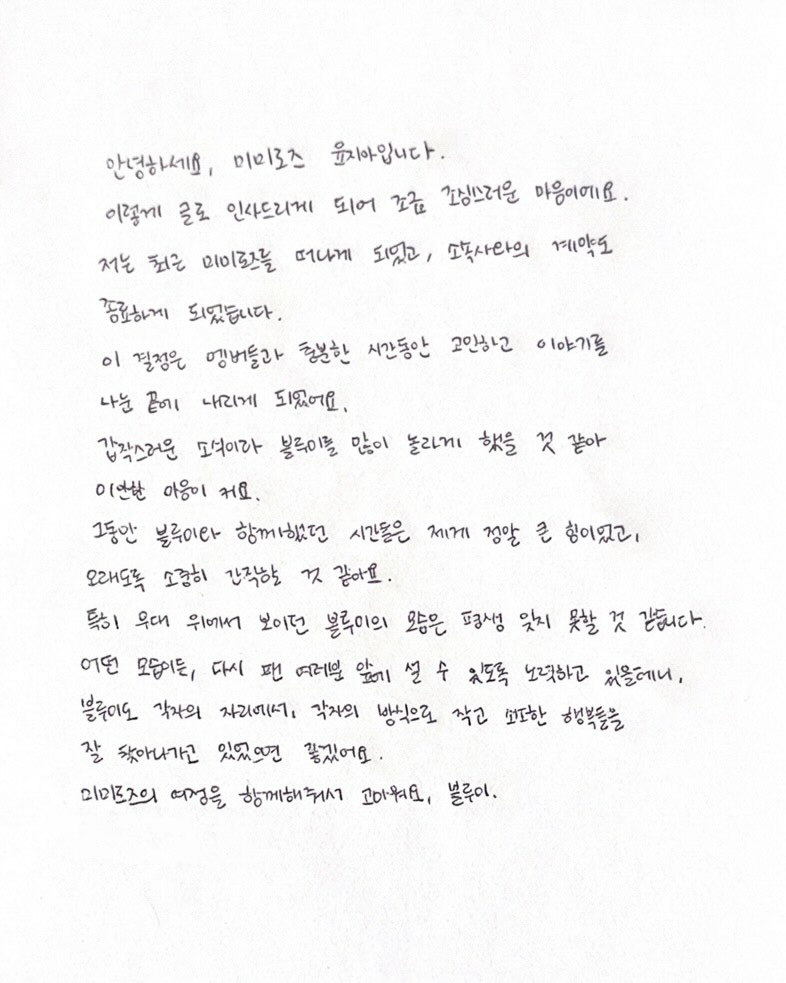 안녕하세요, 미미로즈 윤지아입니다.
이렇게 글로 인사드리게 되어 조금 조심스러운 마음이에요.
저는 최근 미미로즈를 떠나게 되었고, 소속사와의 계약도
종료하게 되었습니다.
이 결정은 멤버들과 충분한 시간동안 고민하고 이야기를
나눈 끝에 내리게 되었어요.
갑작스러운 소식이라 블루이를 많이 놀라게 했을 것 같아
미안한 마음이 커요.
그동안 블루이와 함께했던 시간들은 제게 정말 큰 힘이었고,
오래도록 소중히 간직할 것 같아요.
특히 무대 위에서 보이던 블루이의 모습은 평생 잊지 못할 것 같습니다.
어떤 모습이든, 다시 팬 여러분 앞에 설 수 있도록 노력하고 있을테니,
블루이도 각자의 자리에서, 각자의 방식으로 작고 소소한 행복들을
잘 찾아나가고 있었으면 좋겠어요.
미미로즈의 여정을 함께해줘서 고마워요, 블루이.